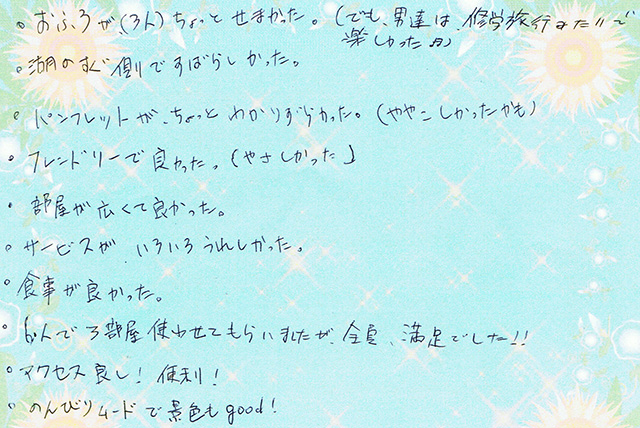 。おふろが、(3人)ちょっとせまかった。(でも、男達は、修学旅行みたいで
楽しかった♬)
。湖のすぐ側ですばらしかった。
。パンフレットが、ちょっとわかりずらかった。(ややこしかったかも)
。フレンドリーで良かった。(やさしかった)
。部屋が広くて良かった。
。サービスが、いろいろうれしかった。
。食事が良かった。
。6人で3部屋使わせてもらいましたが、全員、満足でした!!
。アクセス良し!便利!
。のんびりムードで景色もgood!